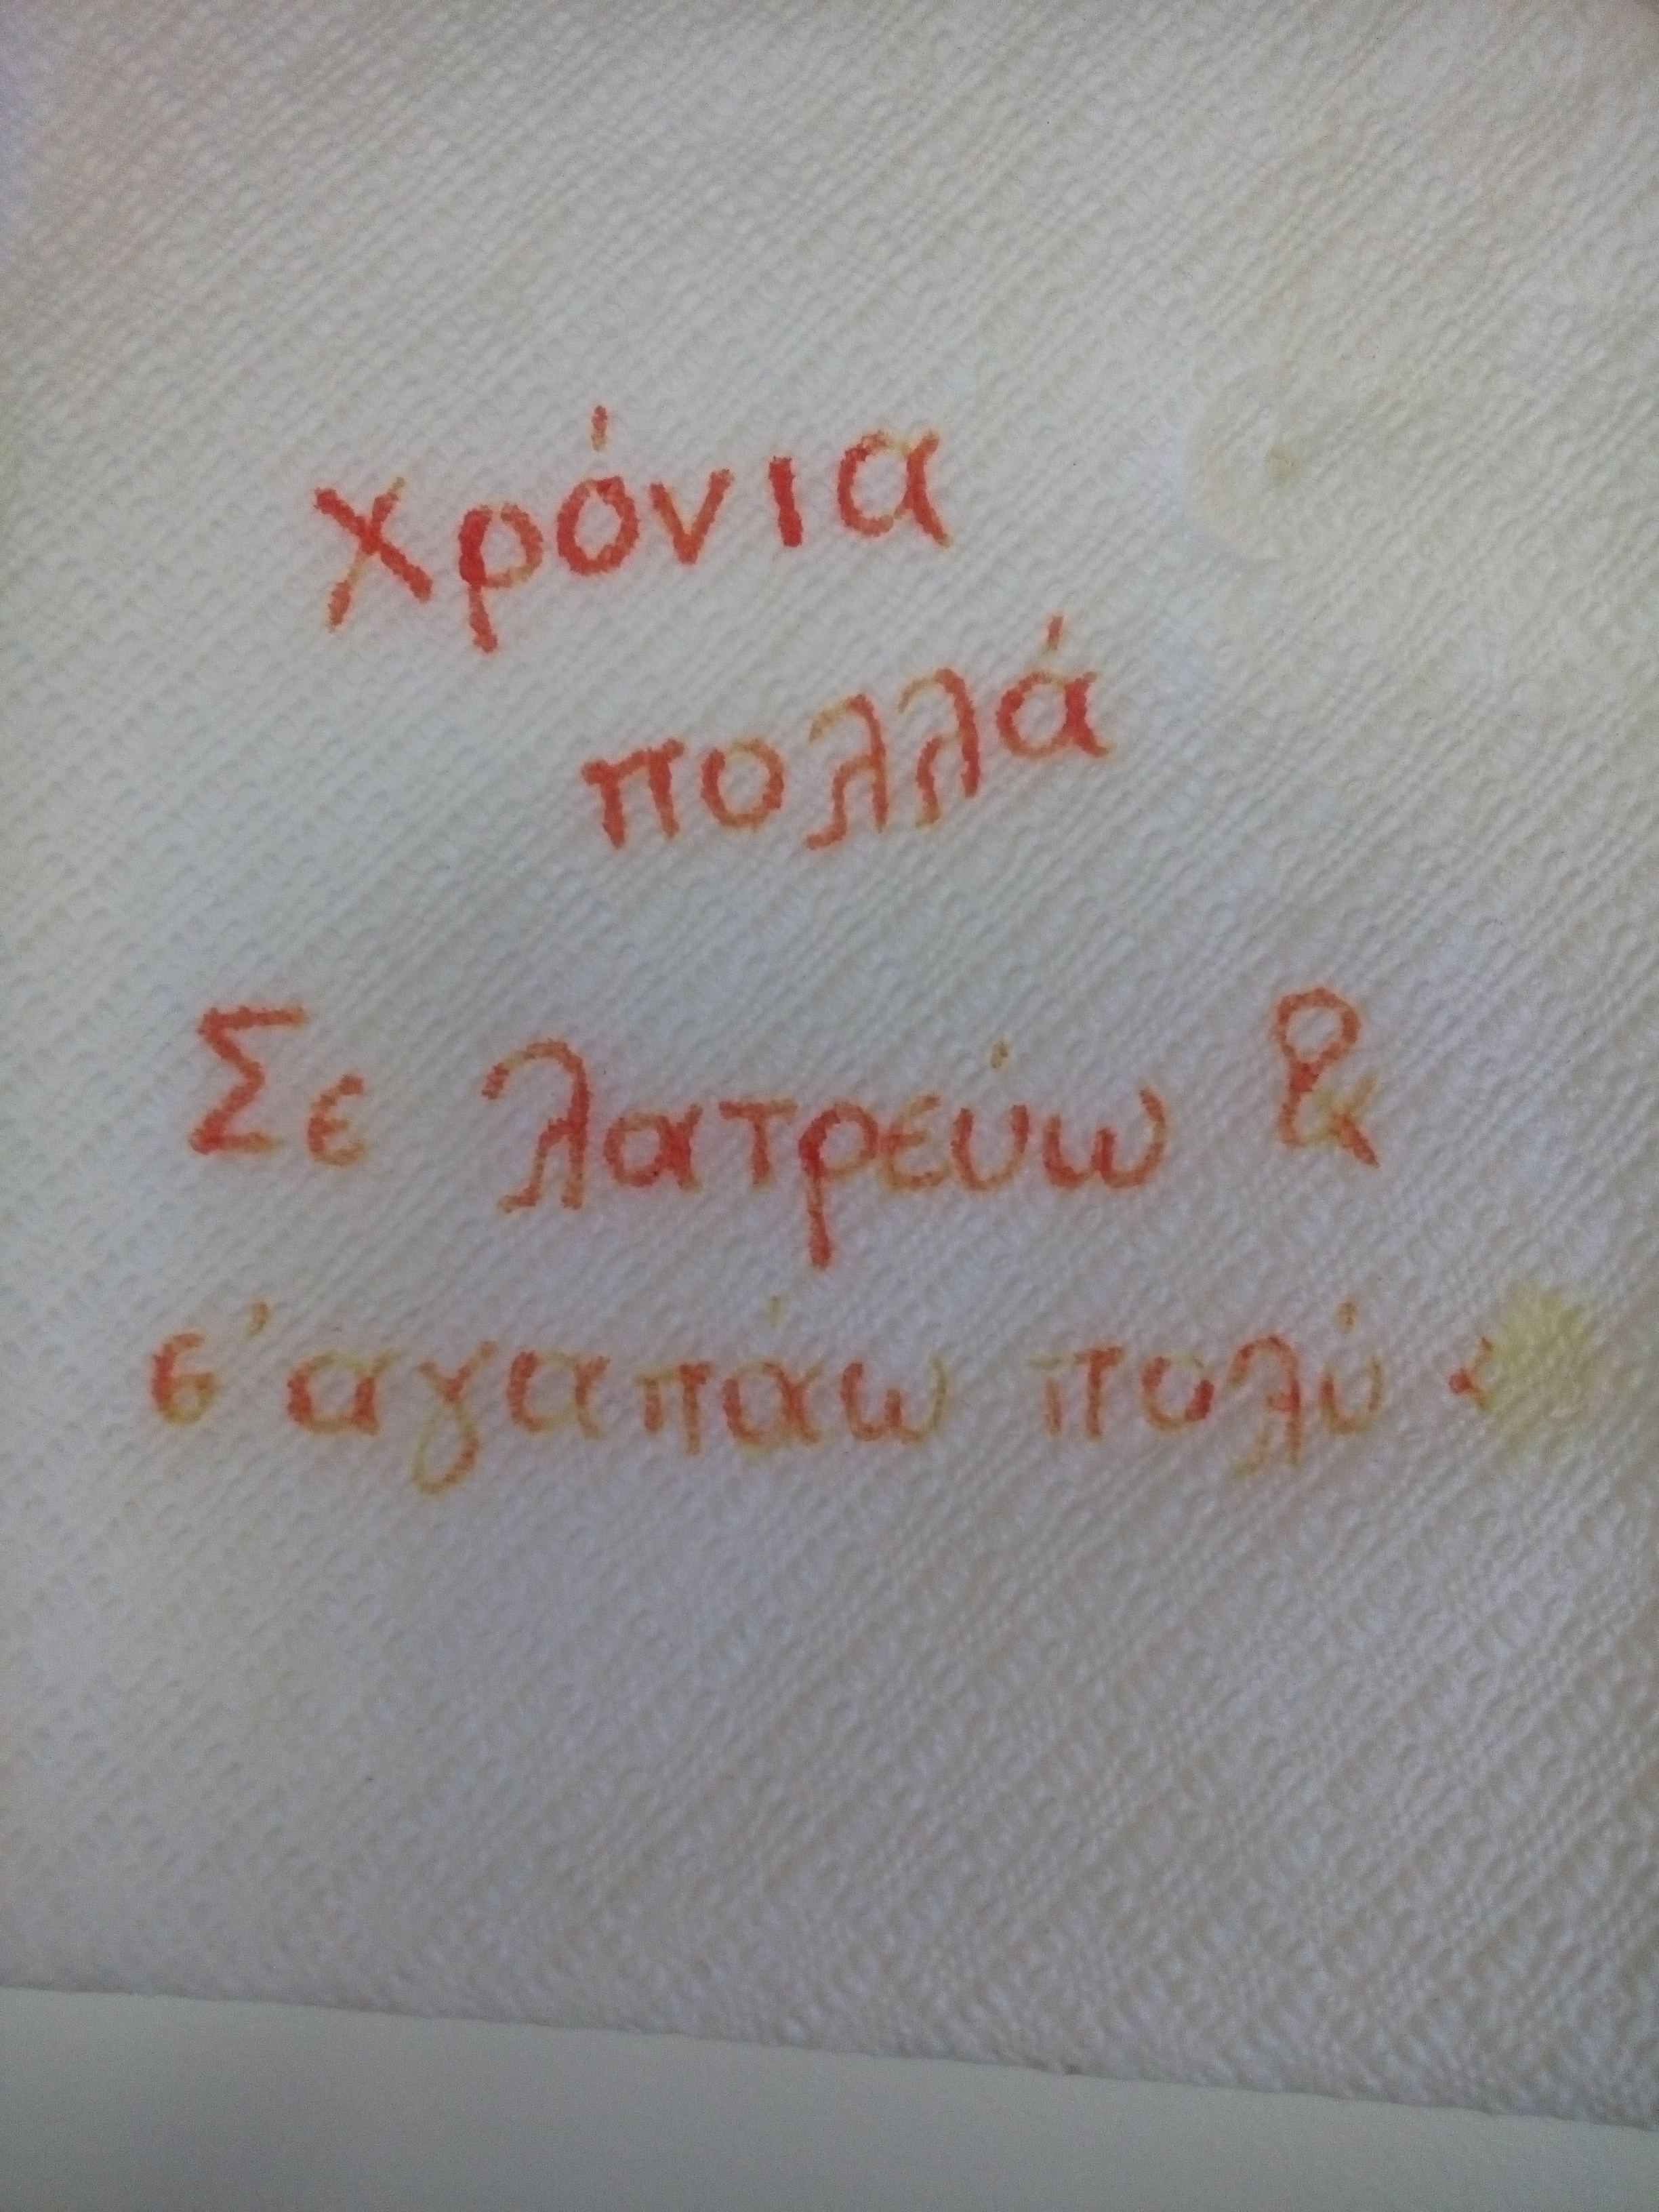 Χρόνια
πολλά
Σε λατρεύω &
σ'αγαπάω πολύ